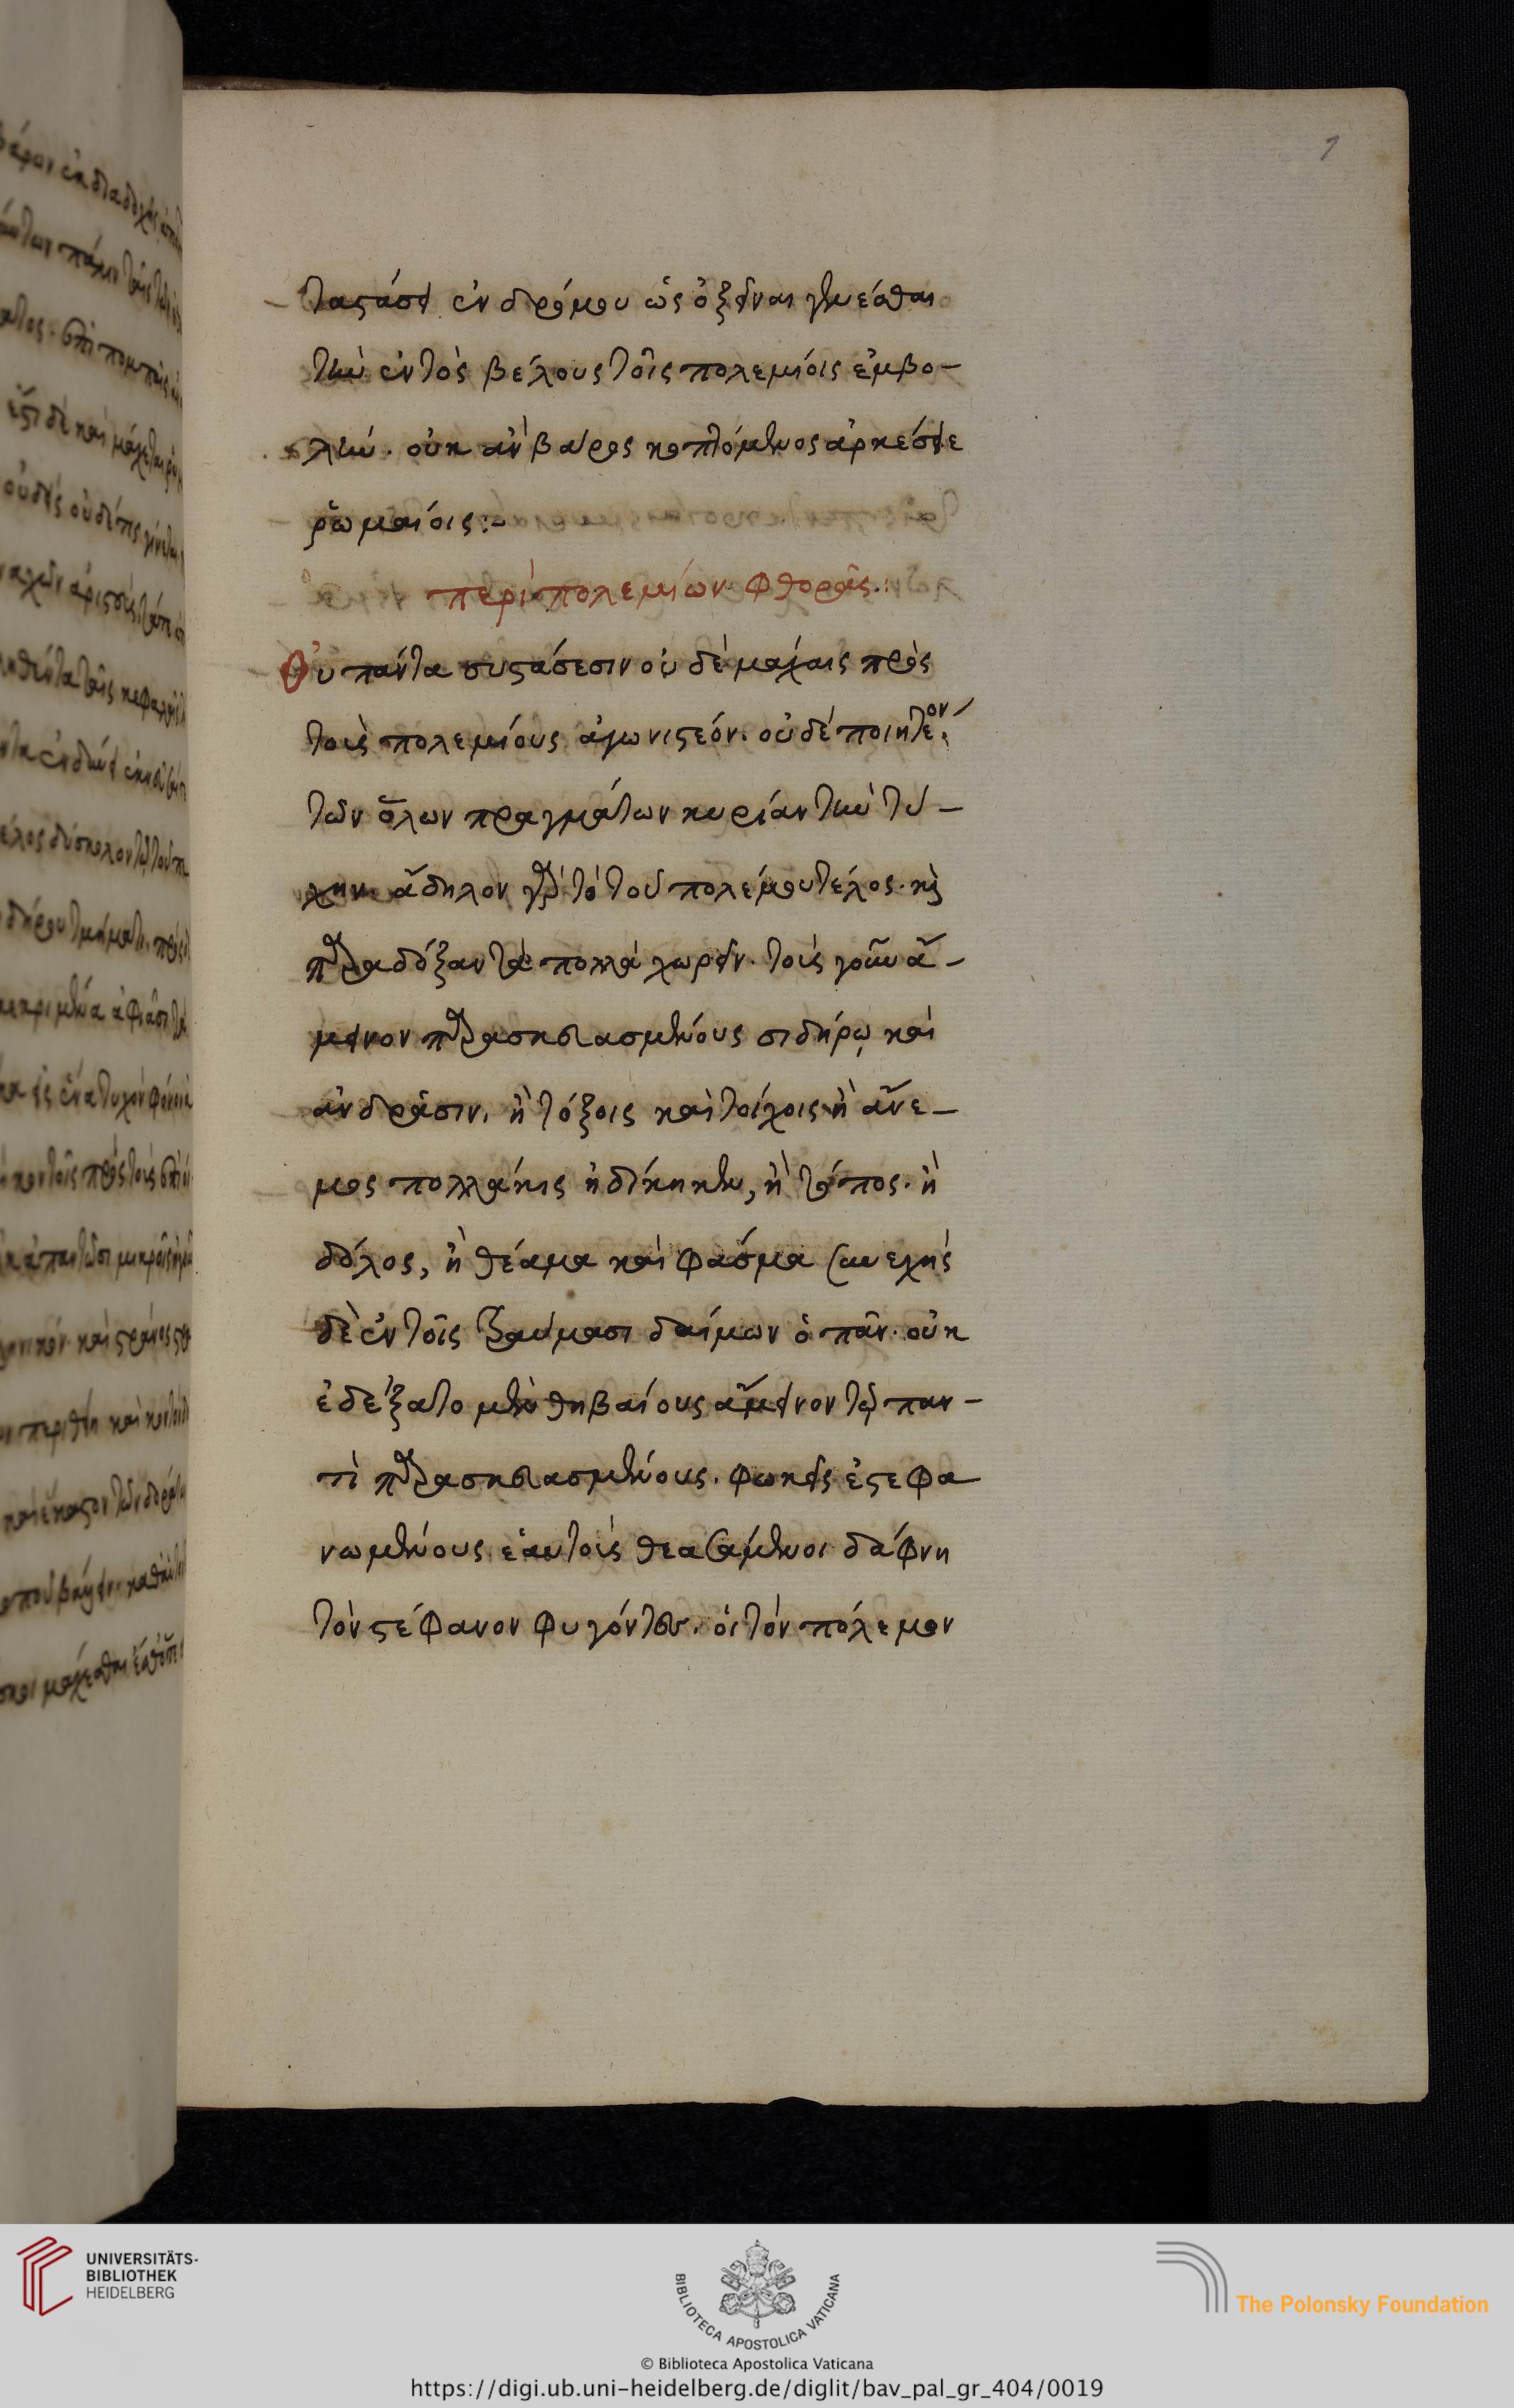 7
ταστάσει ἐν δρόμου ὡς ὀξεῖναι γενέσθαι
τὴν ἐντὸς βέλους τοῖς πολεμίοις ἐμβο-
λήν. οὐκ ἂν βάρος κοπτόμενος ἀρκέσειε
ῥωμαίοις:-
περὶ πολεμίων φθορᾶς:
Οὐ πάντα συστάσεσιν οὐδὲ μάχαις πρὸς
τοὺς πολεμίους ἀγωνιστέον. οὐδὲ ποιητέον
τῶν ὅλων πραγμάτων κυρίαν τὴν τύ-
χην. ἄδηλον γὰρ τὸ τοῦ πολέμου τέλος. καὶ
παραδόξαν τὰ πολλὰ χωρεῖν. τοὺς γοῦν ἄ-
μεινον παρασκευασμένους σιδήρῳ καὶ
ἀνδράσιν, ἢ τόξοις καὶ τοίχοις ἢ ἄνε-
μος πολλάκις ἠδίκηκεν, ἢ τόπος. ἢ
δόλος, ἢ θέαμα καὶ φάσμα συνεχὴς
δὲ ἐν τοῖς τραύμασι δαίμων ὁ πᾶν. οὐκ
ἐδέξατο μὲν θηβαίους ἄμεινον τῷ παν-
τὶ παρασκευασμένους. φωκεῖς ἐστεφα
νωμένους ἑαυτοὺς θεασάμενοι δάφνη
τὸν στέφανον φυγόντων. οἱ τὸν πόλεμον
UNIVERSITÄTS-
BIBLIOTHEK
HEIDELBERG
BIBLIOTECA APOSTOLICA VATICANA
The Polonsky Foundation
© Biblioteca Apostolica Vaticana
https://digi.ub.uni-heidelberg.de/diglit/bav_pal_gr_404/0019